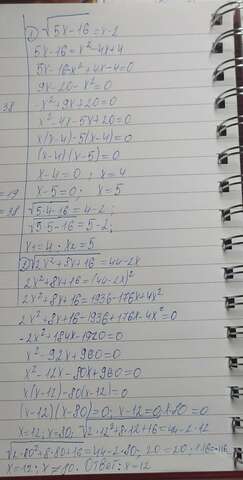 1) √5x-16 = x-2
5x-16 = x²-4x+4
5x-16-x²+4x-4=0
9x-20-x²=0
x²+9x+20=0
38
x²-4x-5x+20=0
x(x-4)-5(x-4)=0
(x-4)(x-5)=0
x-4=0; x=4
=19
x-5=0; x-5
=38
√5·4-16=4-2;
√5·5-16=5-2;
x₁=4; x₂=5
2) √2x²+8x+16=44-2x
2x²+8x+16=(44-2x)²
2x²+8x+16=1936-176x+4x²
2x²+8x+16-1936+176x-4x²=0
-2x²+184x-1920=0
x²-92x+960=0
x²-12x-80x+960=0
x(x-12)-80(x-12)=0
(x-12)(x-80)=0; x-12=0
x=12; x=80; √2·12²+8·12+16=44-2·12
√2·80²+8·80+16=44-2·80; 20=20
x=12; Ответ: x=12